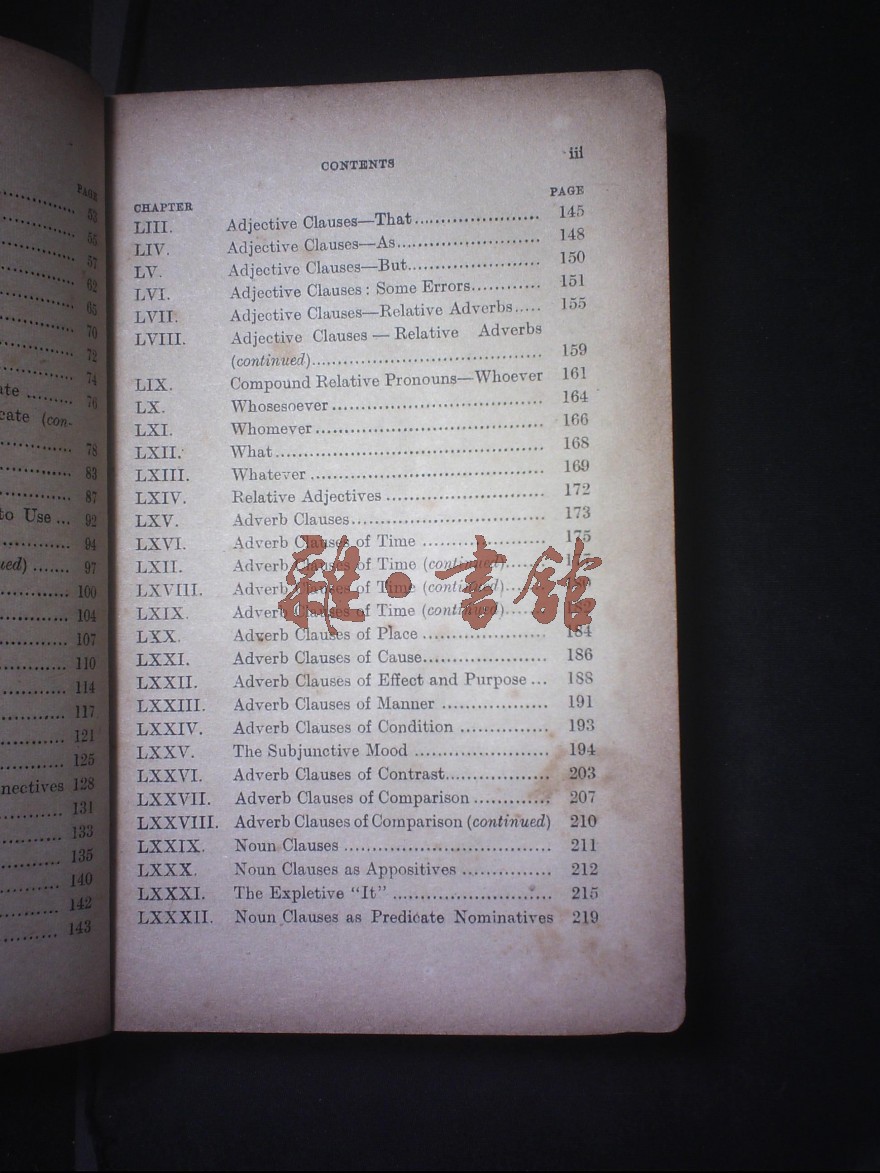 PAGE
53
55
57
62
65
70
72
74
ate ......... 76
cate (con-
78
83
87
to Use ... 92
94
ued) ....... 97
100
104
107
110
114
117
121
125
nectives 128
131
133
135
140
142
143
CONTENTS iii
CHAPTER PAGE
LIII. Adjective Clauses—That ...................... 145
LIV. Adjective Clauses—As ......................... 148
LV. Adjective Clauses—But ........................ 150
LVI. Adjective Clauses: Some Errors ............ 151
LVII. Adjective Clauses—Relative Adverbs ..... 155
LVIII. Adjective Clauses — Relative Adverbs
(continued) ........................................ 159
LIX. Compound Relative Pronouns—Whoever 161
LX. Whosesoever ..................................... 164
LXI. Whomever ........................................ 166
LXII. What ............................................... 168
LXIII. Whatever ......................................... 169
LXIV. Relative Adjectives ............................ 172
LXV. Adverb Clauses .................................. 173
LXVI. Adverb Clauses of Time ...................... 175
LXII. Adverb Clauses of Time (continued) .......
LXVIII. Adverb Clauses of Time (continued) ....... 180
LXIX. Adverb Clauses of Time (continued) ....... 182
LXX. Adverb Clauses of Place ...................... 184
LXXI. Adverb Clauses of Cause ...................... 186
LXXII. Adverb Clauses of Effect and Purpose ... 188
LXXIII. Adverb Clauses of Manner ................... 191
LXXIV. Adverb Clauses of Condition ................ 193
LXXV. The Subjunctive Mood ........................ 194
LXXVI. Adverb Clauses of Contrast .................. 203
LXXVII. Adverb Clauses of Comparison ............. 207
LXXVIII. Adverb Clauses of Comparison (continued) 210
LXXIX. Noun Clauses .................................... 211
LXXX. Noun Clauses as Appositives ................ 212
LXXXI. The Expletive "It" ............................. 215
LXXXII. Noun Clauses as Predicate Nominatives 219
雜·書館